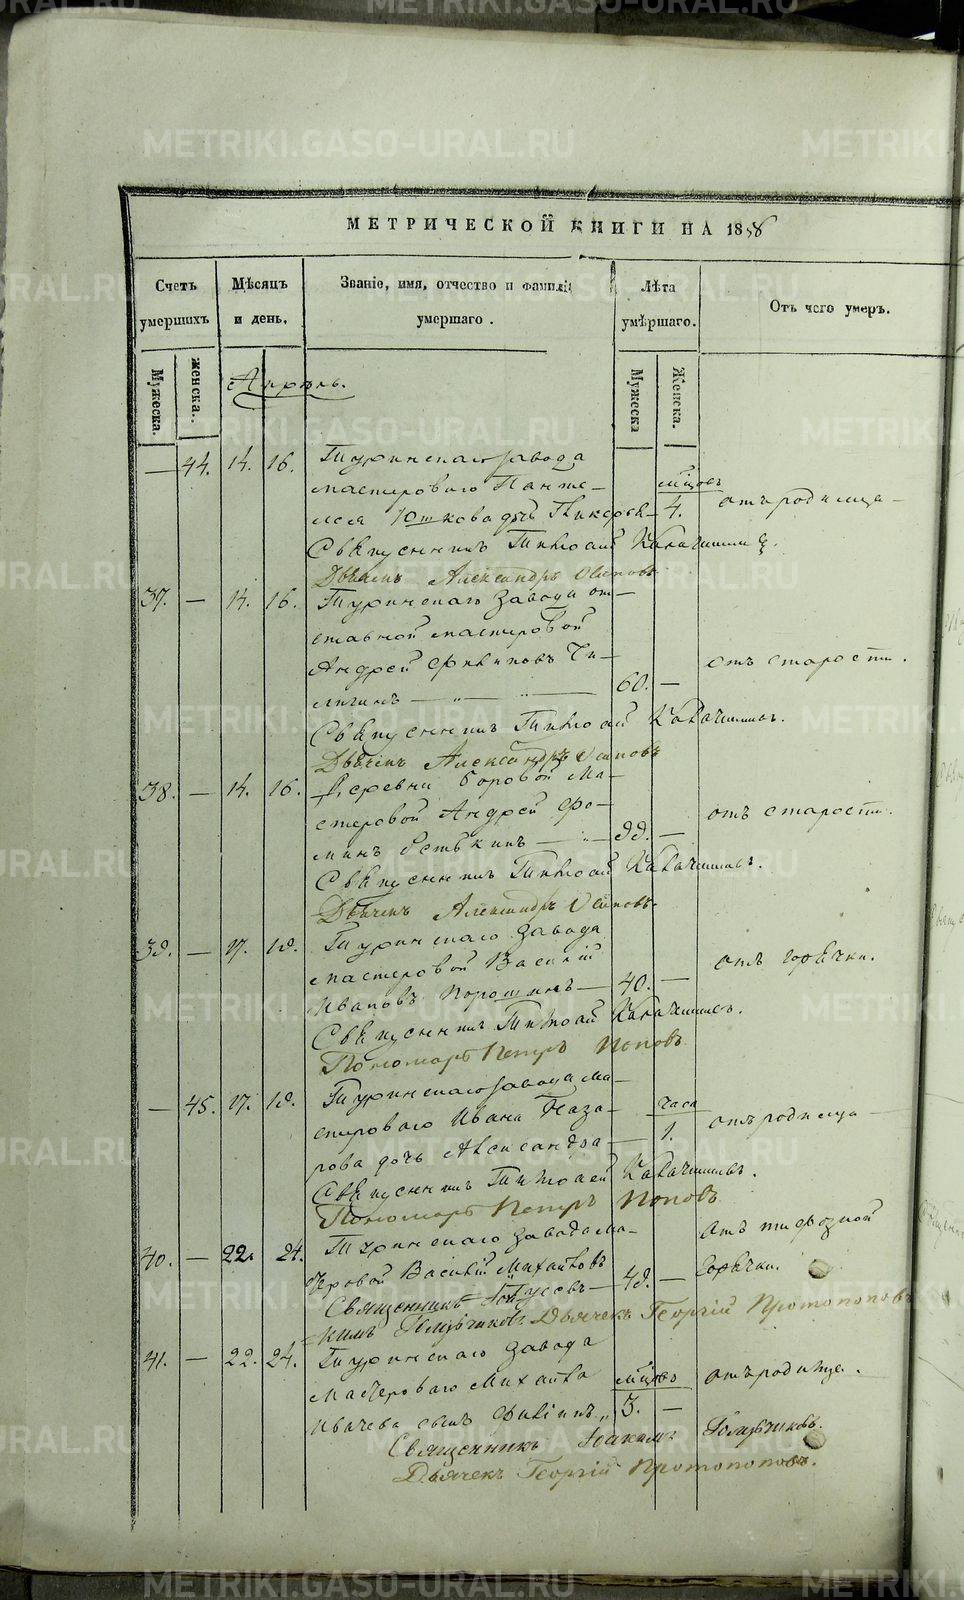 METRIKI.GASO-URAL.RU
МЕТРИЧЕСКОЙ КНИГИ НА 1858
Счетъ умершихъ
Мѣсяцъ и день.
Званіе, имя, отчество и фамилія умершаго.
Лѣта умершаго.
Отъ чего умеръ.
Мужеска.
женска.
Мужеска
Женска.
Апрѣль.
— 44. 14. 16. Туринскаго завода
мастероваго Панте-
лея Юшкова дочь Гликерья мѣсяцъ 4. отъ родимца —
Священникъ Тимоѳей
Дьячекъ Александръ Осиповъ
37. — 14. 16. Туринскаго завода от-
ставной мастеровой
Андрей Филиповъ Чи-
лигинъ — 60. — отъ старости.
Священникъ Тимоѳей
Дьячекъ Александръ Осиповъ
38. — 14. 16. Деревни Боровой ма-
стеровой Андрей Фо-
минъ — — отъ старости.
Священникъ Тимоѳей
Дьячекъ Александръ Осиповъ
39. — 17. 19. Туринскаго завода
мастеровой Василій
Ивановъ Порошинъ — 40. — отъ горячки.
Священникъ Тимоѳей
Пономарь Петръ Поповъ
— 45. 17. 19. Туринскаго завода ма-
стероваго Ивана Наза-
рова дочь Александра — часа 1. отъ родимца —
Священникъ Тимоѳей
Пономарь Петръ Поповъ
40. — 22. 24. Туринскаго завода ма-
стеровой Василій Михайловъ
Гусевъ — 49. — отъ тифозной горячки.
Священникъ Іоа-
кимъ Голубчиковъ Дьячекъ Георгій Протопоповъ
41. — 22. 24. Туринскаго завода
мастероваго Михайла
Ивачева сынъ Филипъ „ мѣсяцъ 3. — отъ родимца.
Священникъ Іоакимъ Голубчиковъ.
Дьячекъ Георгій Протопоповъ.